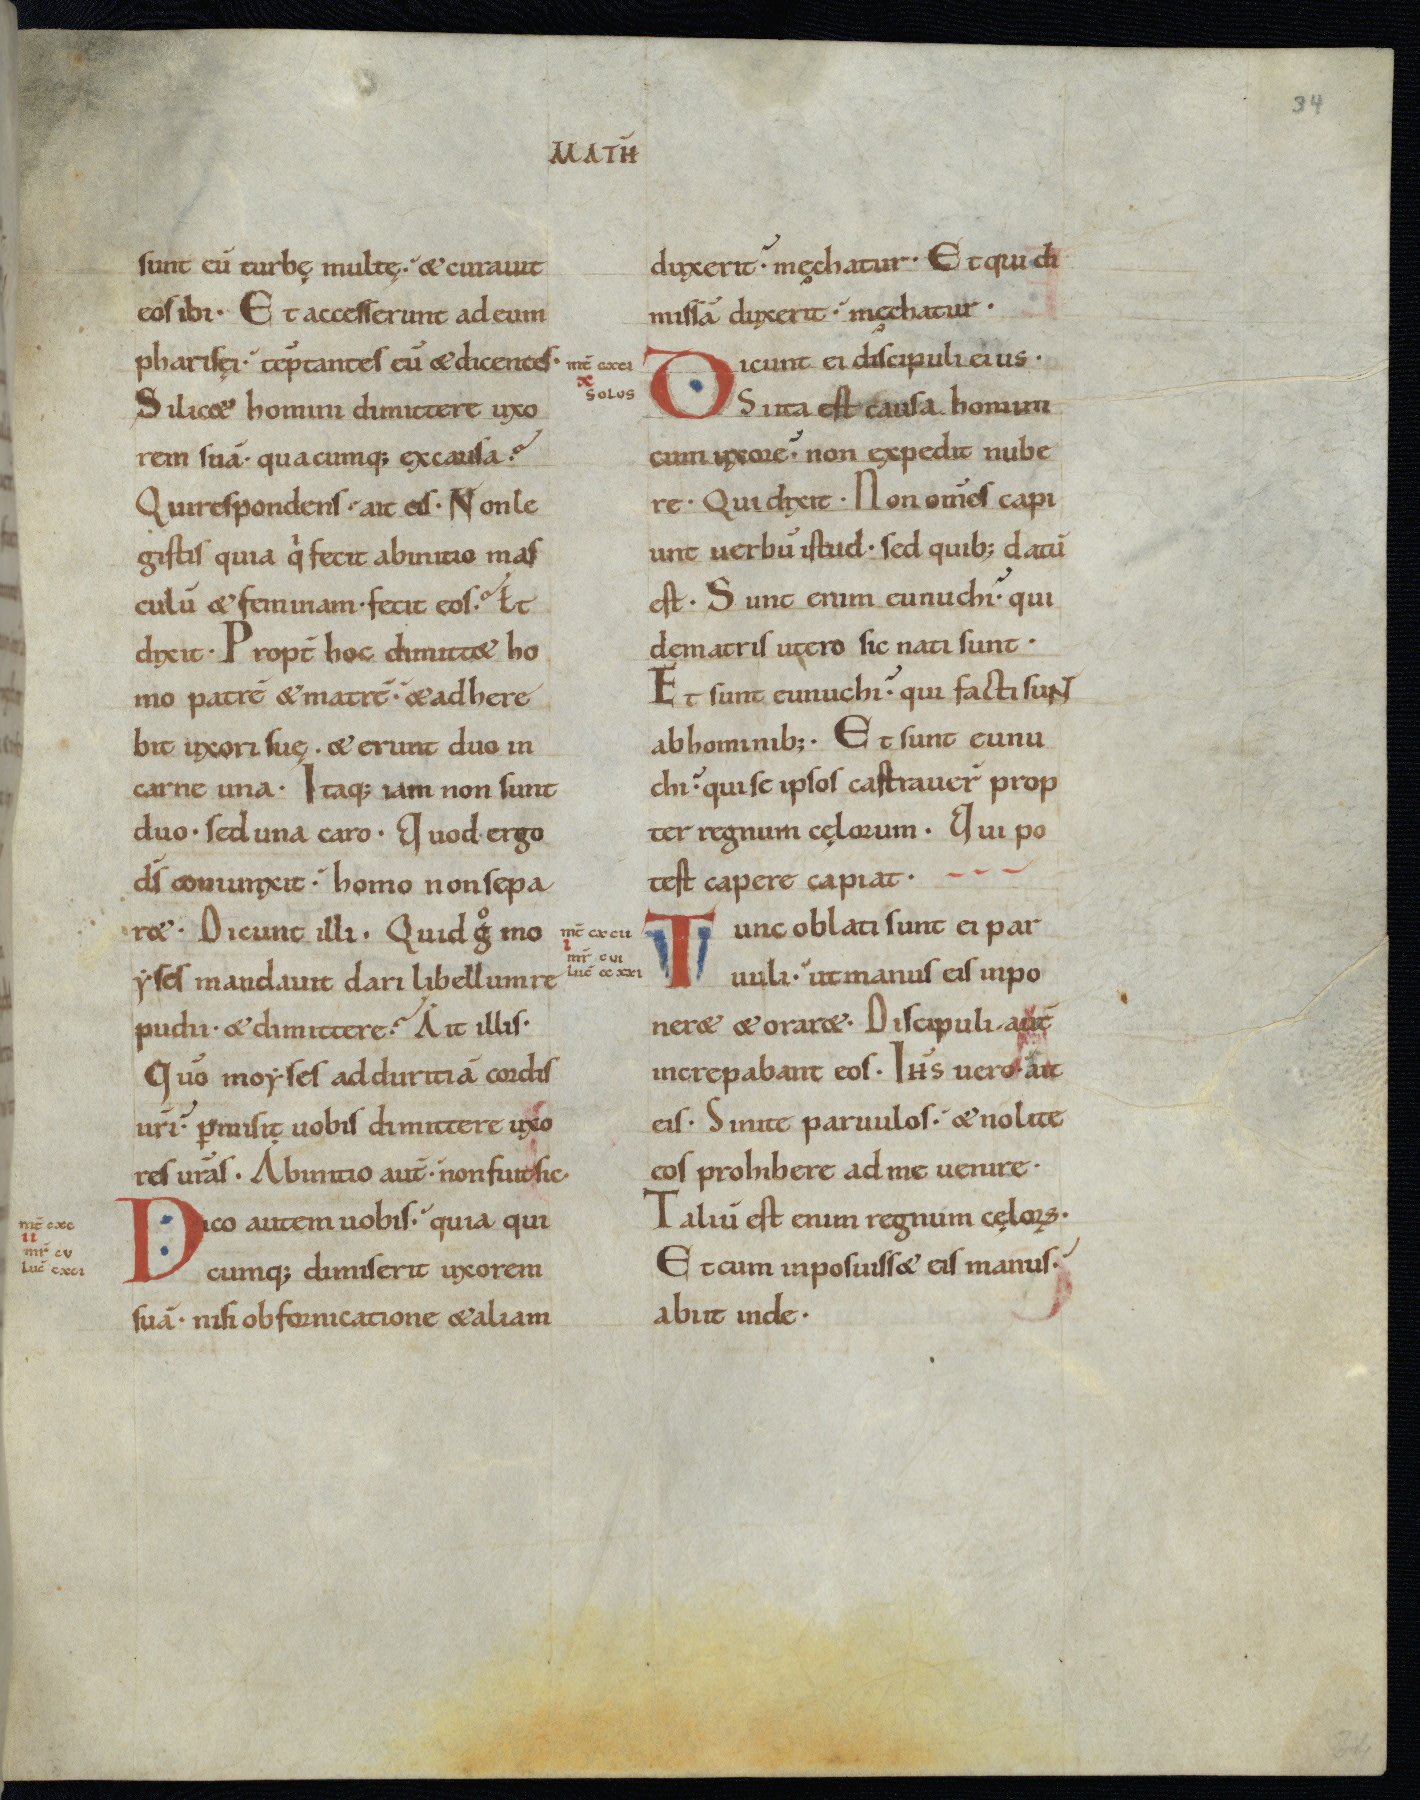 34
MATH̄
sunt cū turbę multę· & curauit
eos ibi· Et accesserunt ad eum
pharisęi· tēptantes eū & dicentes·
Si lic& homini dimittere uxo
rem suā· quacumq; ex causa?
Qui respondens· ait eis· Non le
gistis quia q̇ fecit ab initio mas
culū & feminam· fecit eos? Et
dixit· Propt̄ hoc dimitt& ho
mo patrē & matrē· & adhere
bit uxori suę· & erunt duo in
carne una· Itaq; iam non sunt
duo· sed una caro· Quod ergo
ds̄ coniunxit· homo non sepa
r&· Dicunt illi· Quid gͦ mo
yses mandauit dari libellum re
pudii· & dimittere? Ait illis·
Quō moyses ad duritiā cordis
ur̄i· p̱misit uobis dimittere uxo
res ur̄as· Ab initio aut̄· non fuit sic·
mt̄ cxc
ii
mr̄ cv
luc̄ cxci
Dico autem uobis· quia qui
cumq; dimiserit uxorem
suā· nisi ob fornicatione & aliam
duxerit· męchatur· Et qui di
missā duxerit· męchatur·
mt̄ cxci
x
solus
Dicunt ei discipuli eius·
Si ita est causa homini
cum uxore· non expedit nube
re· Qui dixit· Non om̄es capi
unt uerbū istud· sed quib; datū
est· Sunt enim eunuchi· qui
de matris utero sic nati sunt·
Et sunt eunuchi· qui facti suNT
ab hominib;· Et sunt eunu
chi· qui se ipsos castrauer̄ prop
ter regnum cęlorum· Qui po
test capere capiat·
mt̄ cxcii
i
mr̄ cvi
luc̄ ccxxi
Tunc oblati sunt ei par
uuli· ut manus eis inpo
ner& & orar&· Discipuli aut̄
increpabant eos· Ih̄s uero ait
eis· Sinite paruulos· & nolite
eos prohibere ad me uenire·
Taliū est enim regnum cęloꝝ·
Et cum inposuiss& eis manus·
abiit inde·